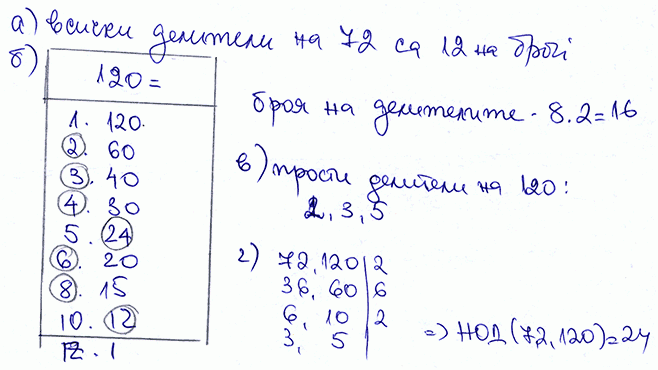 а) всички делители на 72 са 12 на брой
б)
120 =
1. 120.
2. 60
3. 40
4. 30
5. 24
6. 20
8. 15
10. 12
12. 1
броя на делителите - 8.2=16
в) прости делители на 120:
2, 3, 5
г) 72, 120 | 2
36, 60 | 6
6, 10 | 2
3, 5
=> НОД(72,120)=24